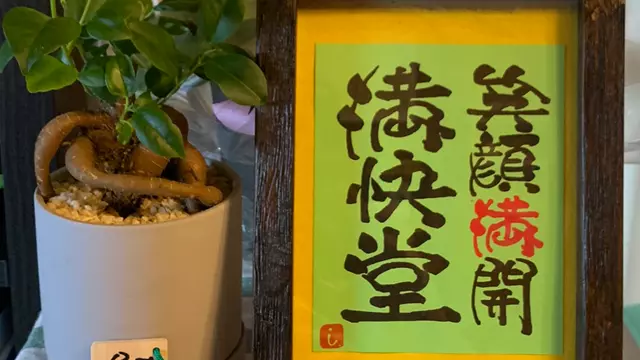 笑顔満開
満快堂
し